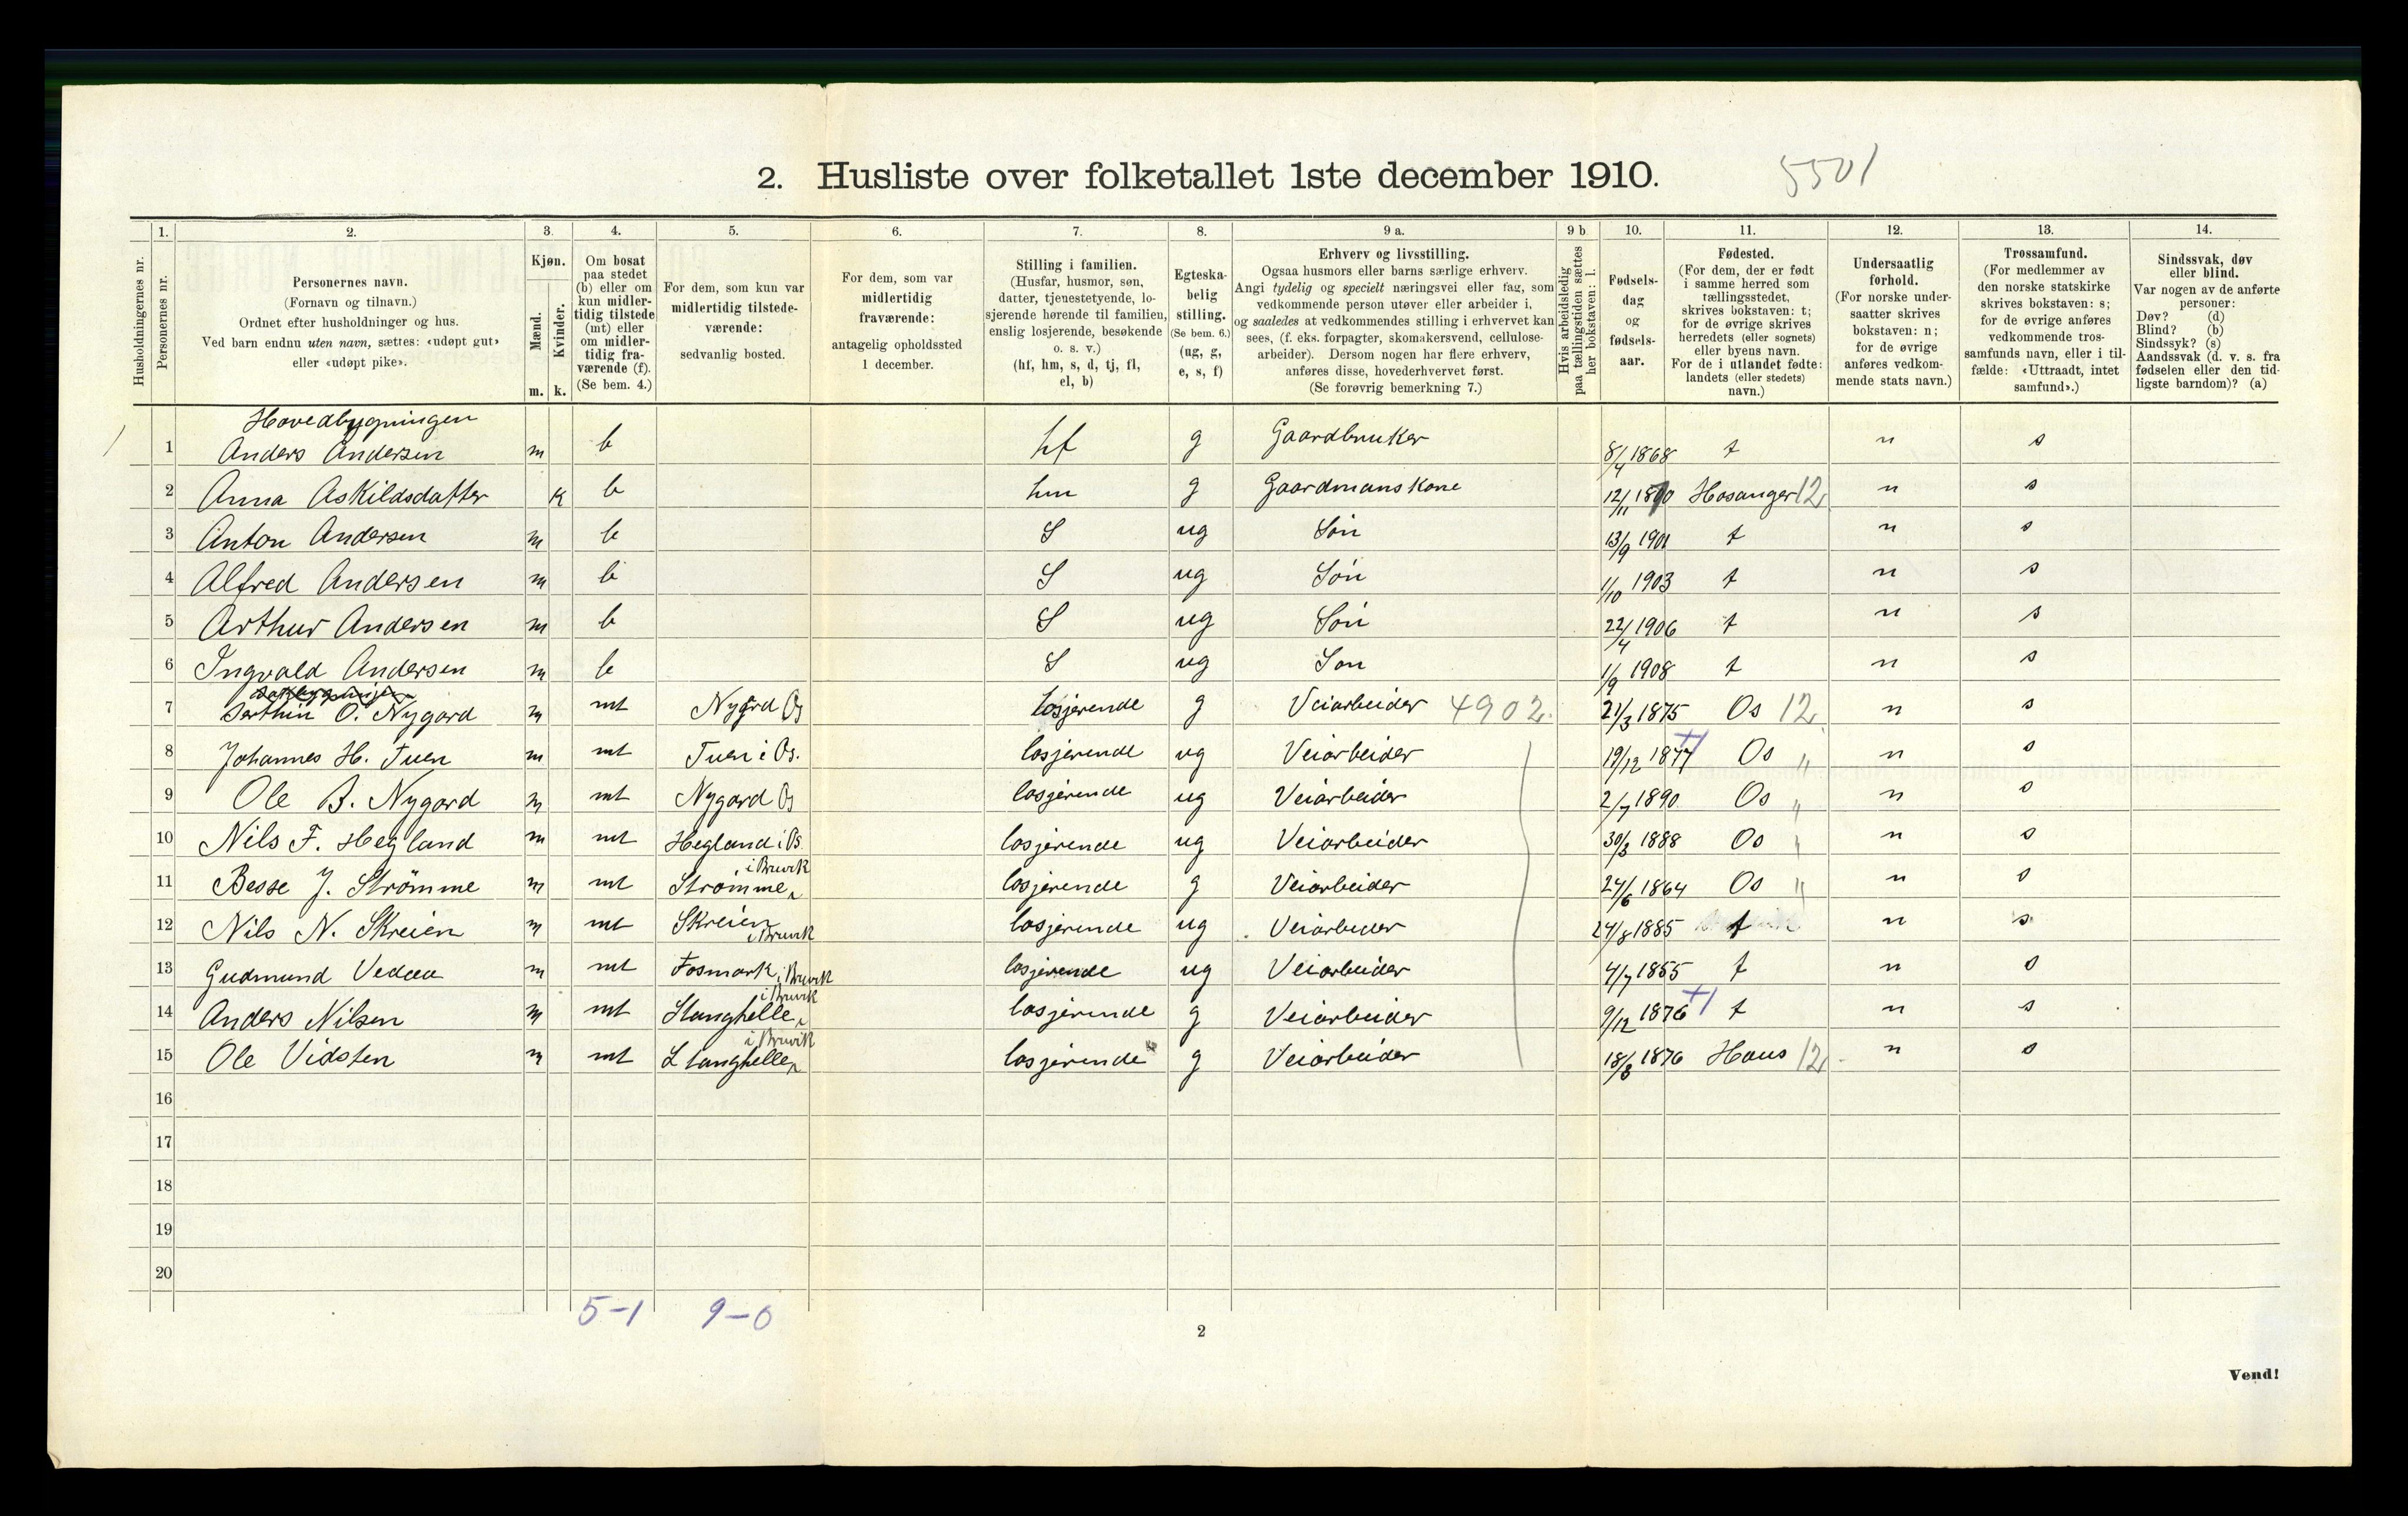 2. Husliste over folketallet 1ste december 1910. 5501
Husholdningernes nr.
1. Personernes nr.
2. Personernes navn. (Fornavn og tilnavn.) Ordnet efter husholdninger og hus. Ved barn endnu uten navn, sættes: «udøpt gut» eller «udøpt pike».
3. Kjøn. Mænd. m. Kvinder. k.
4. Om bosat paa stedet (b) eller om kun midlertidig tilstede (mt) eller om midlertidig fraværende (f). (Se bem. 4.)
5. For dem, som kun var midlertidig tilstedeværende: sedvanlig bosted.
6. For dem, som var midlertidig fraværende: antagelig opholdssted 1 december.
7. Stilling i familien. (Husfar, husmor, søn, datter, tjenestetyende, losjerende hørende til familien, enslig losjerende, besøkende o. s. v.) (hf, hm, s, d, tj, fl, el, b)
8. Egteskabelig stilling. (Se bem. 6.) (ug, g, e, s, f)
9 a. Erhverv og livsstilling. Ogsaa husmors eller barns særlige erhverv. Angi tydelig og specielt næringsvei eller fag, som vedkommende person utøver eller arbeider i, og saaledes at vedkommendes stilling i erhvervet kan sees, (f. eks. forpagter, skomakersvend, cellulosearbeider). Dersom nogen har flere erhverv, anføres disse, hovederhvervet først. (Se forøvrig bemerkning 7.)
9 b Hvis arbeidsledig paa tællingstiden sættes her bokstaven: l.
10. Fødselsdag og fødselsaar.
11. Fødested. (For dem, der er født i samme herred som tællingsstedet, skrives bokstaven: t; for de øvrige skrives herredets (eller sognets) eller byens navn. For de i utlandet fødte: landets (eller stedets) navn.)
12. Undersaatlig forhold. (For norske undersaatter skrives bokstaven: n; for de øvrige anføres vedkommende stats navn.)
13. Trossamfund. (For medlemmer av den norske statskirke skrives bokstaven: s; for de øvrige anføres vedkommende trossamfunds navn, eller i tilfælde: «Uttraadt, intet samfund».)
14. Sindssvak, døv eller blind. Var nogen av de anførte personer: Døv? (d) Blind? (b) Sindssyk? (s) Aandssvak (d. v. s. fra fødselen eller den tidligste barndom)? (a)
Hovedbygningen
1 Anders Andersen m b hf g Gaardbruker 8/4 1868 t n s
2 Anna Askildsdatter k b hm g Gaardmanskone 12/11 1870 Hosanger 12 n s
3 Anton Andersen m b S ug Søn 13/9 1901 t n s
4 Alfred Andersen m b S ug Søn 1/10 1903 t n s
5 Arthur Andersen m b S ug Søn 22/4 1906 t n s
6 Ingvald Andersen m b S ug Søn 1/9 1908 t n s
7 O. Nygard m mt Nygård Os losjerende g Veiarbeider 4902. 21/3 1875 Os 12 n s
8 Johannes H. Tuen m mt Tuen i Os. losjerende ug Veiarbeider 19/12 1877 Os " n s
9 Ole B. Nygard m mt Nygard Os losjerende ug Veiarbeider 2/7 1890 Os " n s
10 Nils F. Hegland m mt Hegland i Os. losjerende ug Veiarbeider 30/3 1888 Os " n s
11 Besse J. Strömme m mt Strømme i Bruvik losjerende g Veiarbeider 24/6 1864 Os " n s
12 Nils N. Skreien m mt Skreien i Bruvik losjerende ug Veiarbeider 24/8 1885 t n s
13 Gudmund Vedaa m mt Fosmark i Bruvik losjerende ug Veiarbeider 4/7 1855 t n s
14 Anders Nilsen m mt Stanghelle i Bruvik losjerende g Veiarbeider 9/12 1876 t n s
15 Ole Vidsten m mt Stanghelle i Bruvik losjerende g Veiarbeider 18/8 1876 Haus 12 n s
16
17
18
19
20
5-1 9-0
2
Vend!